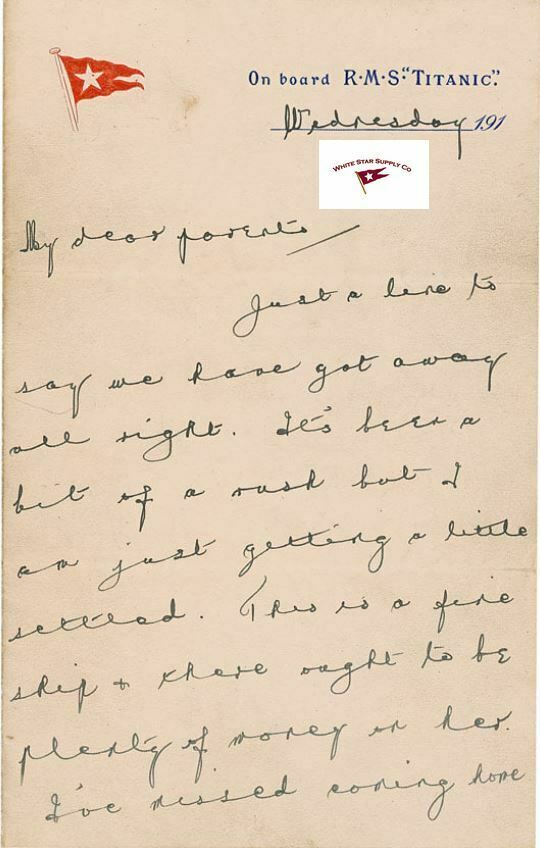 On board R·M·S·"TITANIC".
Wednesday 191
WHITE STAR SUPPLY CO
My dear parents
Just a line to
say we have got away
all right. It's been a
bit of a rush but I
am just getting a little
settled. This is a fine
ship & there ought to be
plenty of money in her.
I've missed coming home